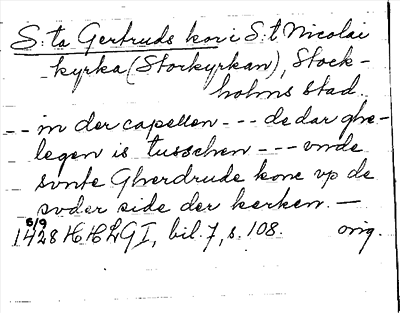 S:ta Gertruds kor i S:t Nicolai
kyrka (Storkyrkan), Stock-
holms stad.
-- in der capellen --- de dar ghe-
legen is tusschen --- vnde
sunte Gherdrude kore vp de
suder side der kerken. —
5/9
1428 HHLG I, bil. 7, s. 108. orig.